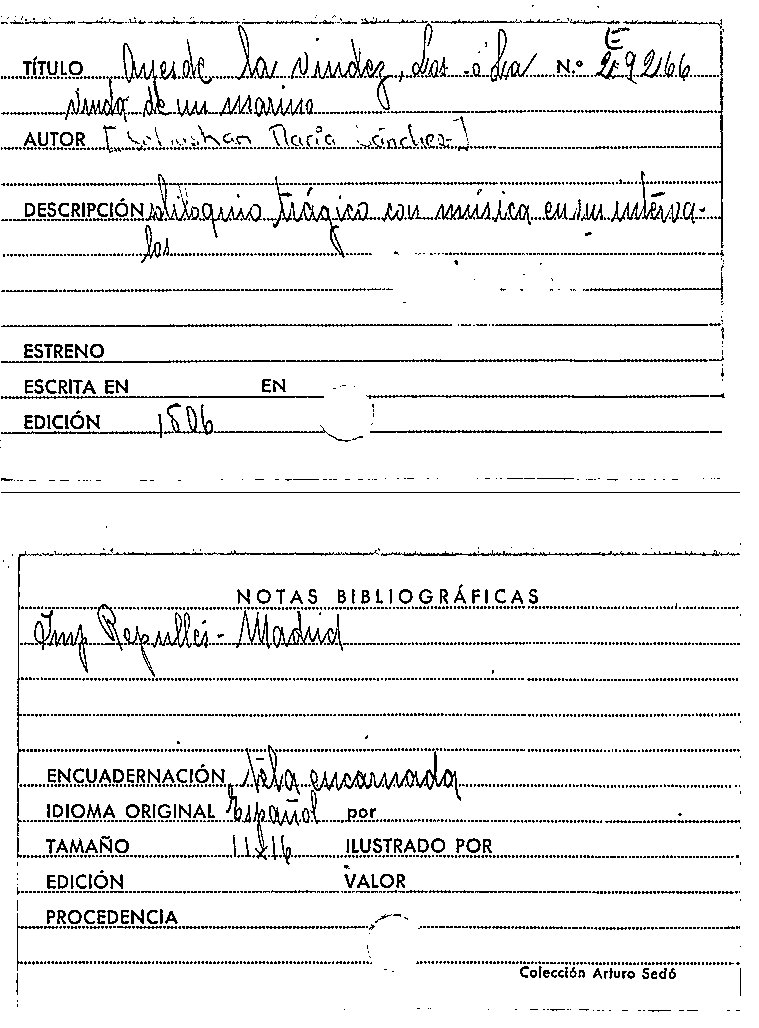 E
TÍTULO Ayes de la viudez, Los ó La N.º 29266
viuda de un marino
AUTOR [Sebastian María Sánchez]
DESCRIPCIÓN soliloquio trágico con música en sus interva-
los
ESTRENO
ESCRITA EN EN
EDICIÓN 1806
NOTAS BIBLIOGRÁFICAS
Imp Repullés - Madrid
ENCUADERNACIÓN Tela encarnada
IDIOMA ORIGINAL Español por
TAMAÑO 11x16 ILUSTRADO POR
EDICIÓN VALOR
PROCEDENCIA
Colección Arturo Sedó